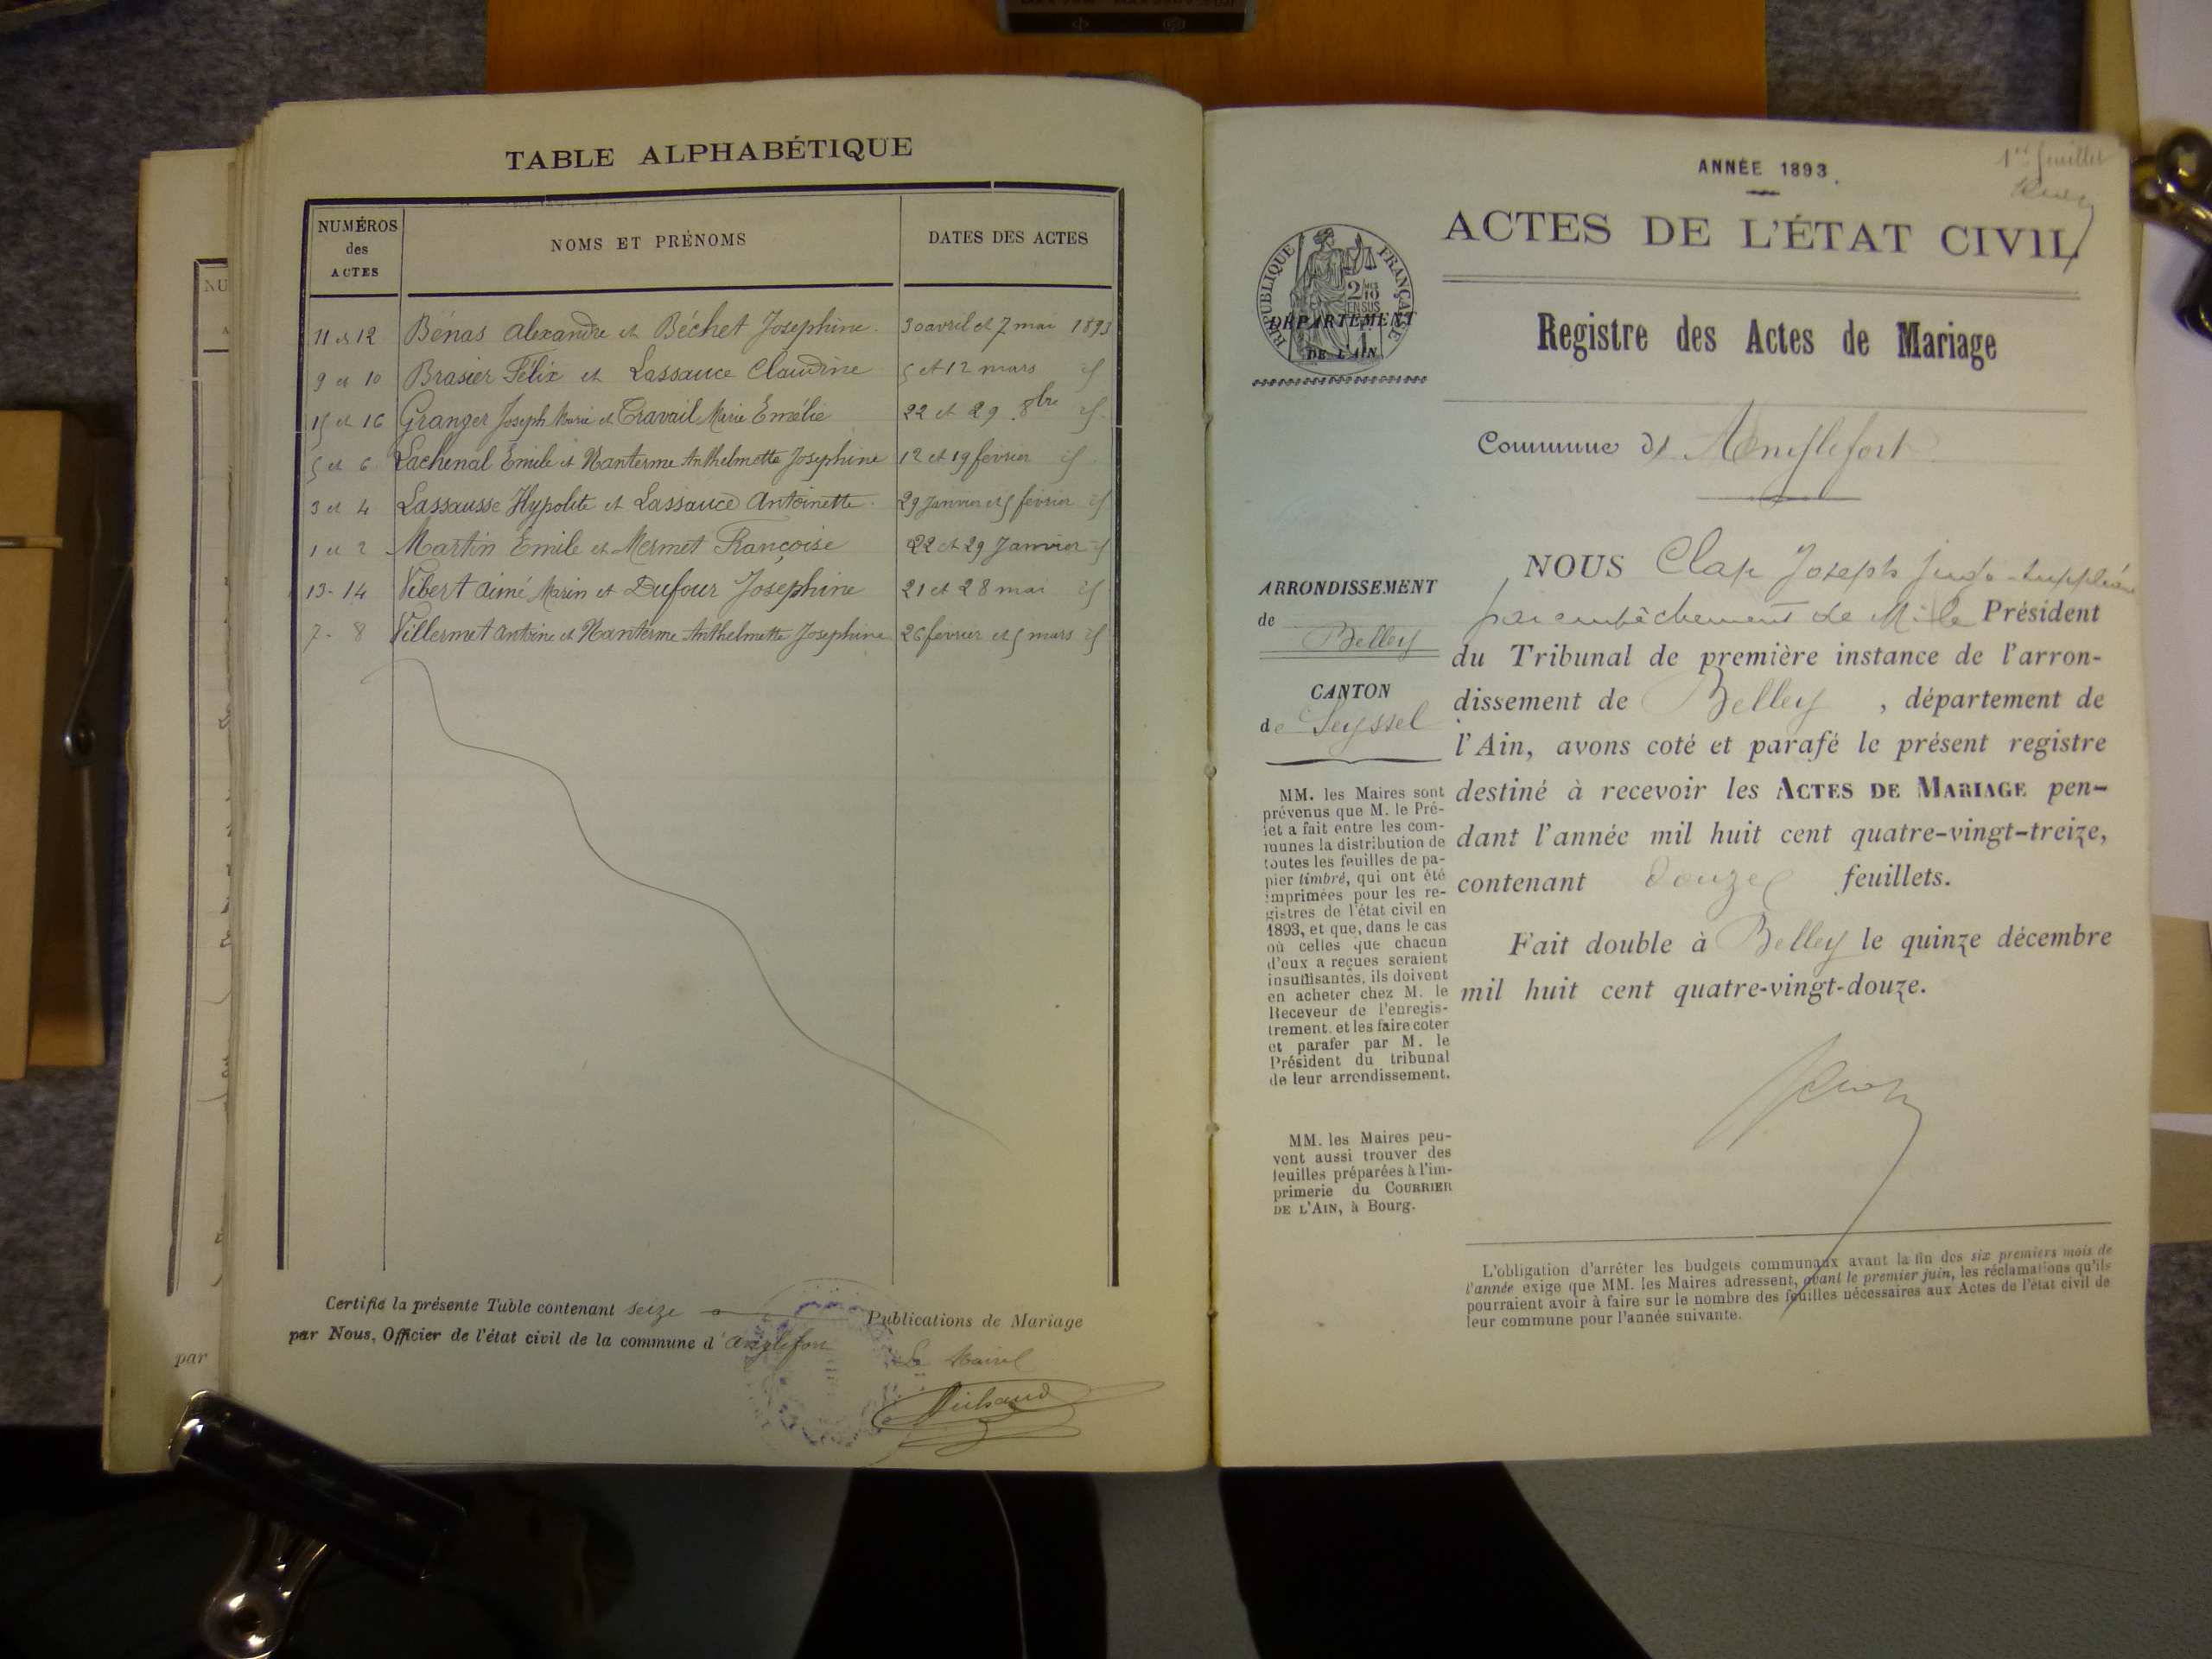 TABLE ALPHABÉTIQUE
NUMÉROS
des
ACTES
NOMS ET PRÉNOMS
DATES DES ACTES
11 et 12 Bénas Alexandre et Béchet Josephine. 30 avril et 7 mai 1893
9 et 10 Brasier Félix et Lassauce Claudine 5 et 12 mars id
15 et 16 Granger Joseph Marie et Travail Marie Emélie 22 et 29 8bre id.
5 et 6 Lachenal Emile et Nanterme Anthelmette Josephine 12 et 19 fevrier id
3 et 4 Lassausse Hypolite et Lassauce Antoinette. 29 Janvier et 5 fevrier id
1 et 2 Martin Emile et Mermet Françoise 22 et 29 Janvier id
13 - 14 Vibert Aimé Marin et Dufour Josephine 21 et 28 mai id
7 - 8 Villermet Antoine et Nanterme Anthelmette Josephine 26 fevrier et 5 mars id
Certifié la présente Table contenant seize Publications de Mariage
par Nous, Officier de l'état civil de la commune d'Anglefort
Le Maire
NU
par
1er feuillet
ANNÉE 1893.
ACTES DE L'ÉTAT CIVIL
RÉPUBLIQUE FRANÇAISE
2/10
EN SUS
DÉPARTEMENT
DE L'AIN
Registre des Actes de Mariage
Commune d'Anglefort
ARRONDISSEMENT
de Belley
CANTON
de Seyssel
MM. les Maires sont
prévenus que M. le Pré-
fet a fait entre les com-
munes la distribution de
toutes les feuilles de pa-
pier timbré, qui ont été
imprimées pour les re-
gistres de l'état civil en
1893, et que, dans le cas
où celles que chacun
d'eux a reçues seraient
insuffisantes, ils doivent
en acheter chez M. le
Receveur de l'enregis-
trement. et les faire coter
et parafer par M. le
Président du tribunal
de leur arrondissement.
MM. les Maires peu-
vent aussi trouver des
feuilles préparées à l'im-
primerie du COURRIER
DE L'AIN, à Bourg.
NOUS Clap Joseph juge-suppléant
par empêchement de M. le Président
du Tribunal de première instance de l'arron-
dissement de Belley, département de
l'Ain, avons coté et parafé le présent registre
destiné à recevoir les ACTES DE MARIAGE pen-
dant l'année mil huit cent quatre-vingt-treize,
contenant douze feuillets.
Fait double à Belley le quinze décembre
mil huit cent quatre-vingt-douze.
L'obligation d'arrêter les budgets communaux avant la fin des six premiers mois de
l'année exige que MM. les Maires adressent, avant le premier juin, les réclamations qu'ils
pourraient avoir à faire sur le nombre des feuilles nécessaires aux Actes de l'état civil de
leur commune pour l'année suivante.